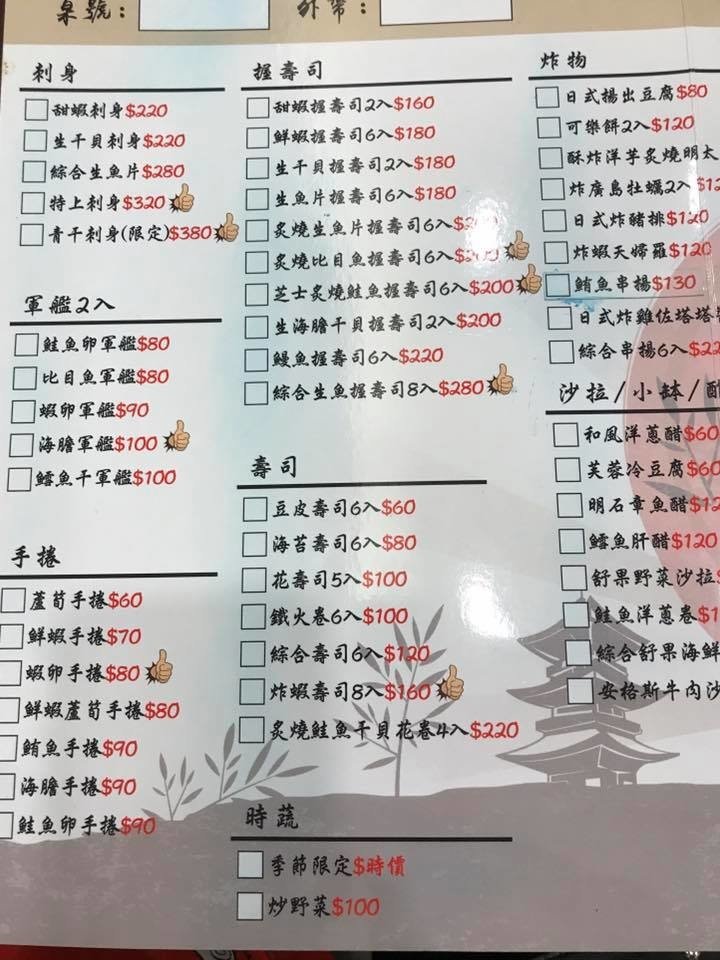 桌號：
外帶：
刺身
甜蝦刺身$220
生干貝刺身$220
綜合生魚片$280
特上刺身$320
青干刺身(限定)$380
軍艦2入
鮭魚卵軍艦$80
比目魚軍艦$80
蝦卵軍艦$90
海膽軍艦$100
鱈魚干軍艦$100
手捲
蘆筍手捲$60
鮮蝦手捲$70
蝦卵手捲$80
鮮蝦蘆筍手捲$80
鮪魚手捲$90
海膽手捲$90
鮭魚卵手捲$90
握壽司
甜蝦握壽司2入$160
鮮蝦握壽司6入$180
生干貝握壽司2入$180
生魚片握壽司6入$180
炙燒生魚片握壽司6入
炙燒比目魚握壽司6入
芝士炙燒鮭魚握壽司6入$200
生海膽干貝握壽司2入$200
鰻魚握壽司6入$220
綜合生魚握壽司8入$280
壽司
豆皮壽司6入$60
海苔壽司6入$80
花壽司5入$100
鐵火卷6入$100
綜合壽司6入$120
炸蝦壽司8入$160
炙燒鮭魚干貝花卷4入$220
時蔬
季節限定$時價
炒野菜$100
炸物
日式揚出豆腐$80
可樂餅2入$120
酥炸洋芋炙燒明太
炸廣島牡蠣2入
日式炸豬排$120
炸蝦天婦羅$120
鮪魚串揚$130
日式炸雞佐塔塔
綜合串揚6入
沙拉/小缽/
和風洋蔥醋$60
芙蓉冷豆腐$60
明石章魚醋
鱈魚肝醋$120
舒果野菜沙拉
鮭魚洋蔥卷
綜合舒果海鮮
安格斯牛肉沙